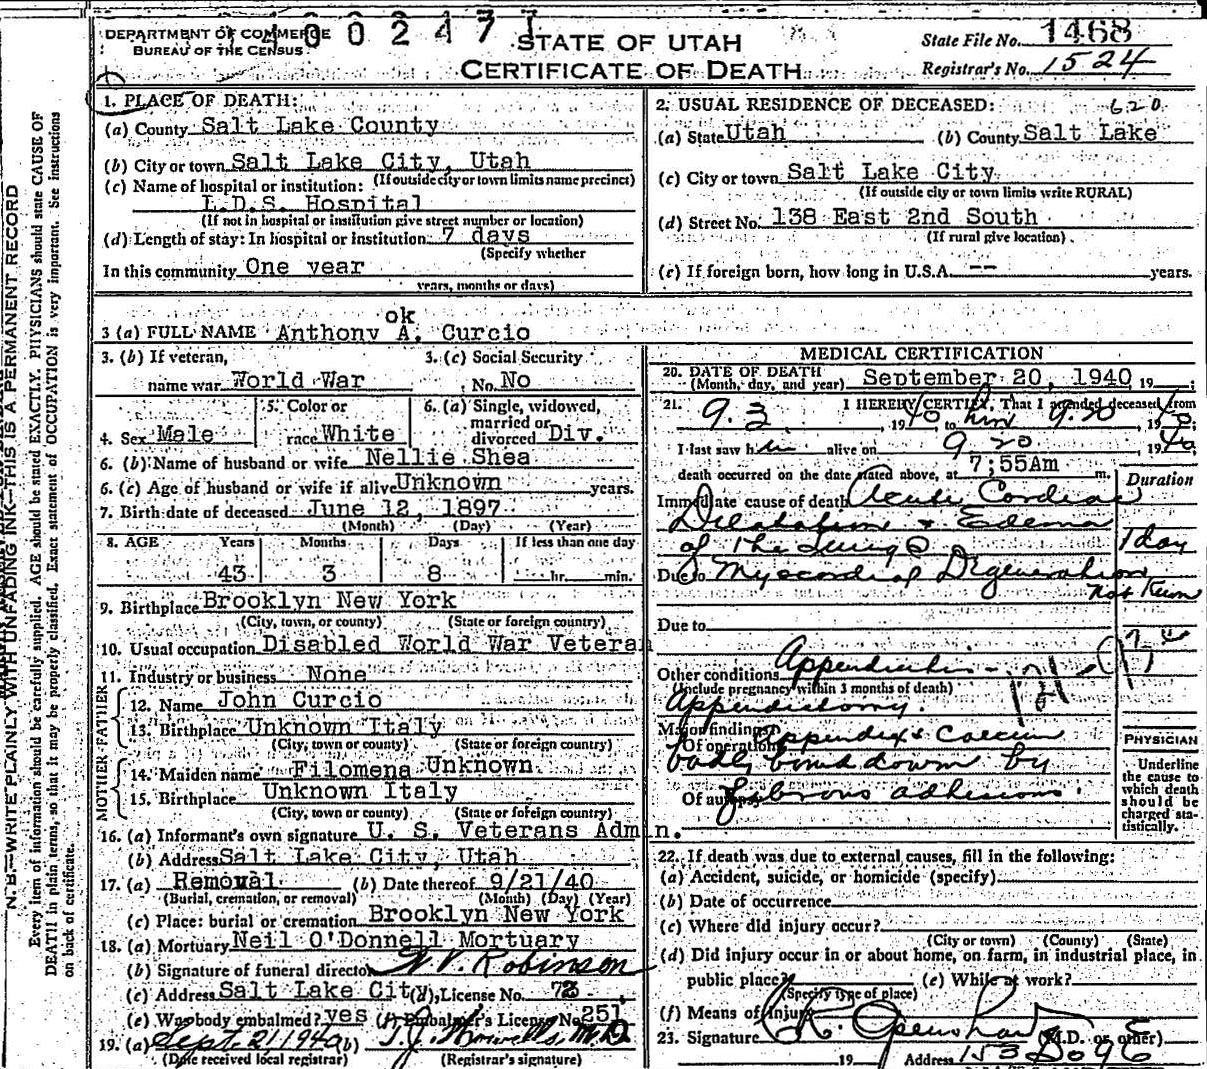 DEPARTMENT OF COMMERCE
BUREAU OF THE CENSUS
4 0 0 2 4 7 7
STATE OF UTAH
CERTIFICATE OF DEATH
State File No. 1468
Registrar's No. 1524
N. B.—WRITE PLAINLY WITH UNFADING INK—THIS IS A PERMANENT RECORD
Every item of information should be carefully supplied. AGE should be stated EXACTLY. PHYSICIANS should state CAUSE OF
DEATH in plain terms, so that it may be properly classified. Exact statement of OCCUPATION is very important. See instructions
on back of certificate.
1. PLACE OF DEATH:
(a) County Salt Lake County
(b) City or town Salt Lake City, Utah
(If outside city or town limits name precinct)
(c) Name of hospital or institution:
L.D.S. Hospital
(If not in hospital or institution give street number or location)
(d) Length of stay: In hospital or institution 7 days
(Specify whether
In this community One year
years, months or days)
2. USUAL RESIDENCE OF DECEASED: 620
(a) State Utah (b) County Salt Lake
(c) City or town Salt Lake City
(If outside city or town limits write RURAL)
(d) Street No. 138 East 2nd South
(If rural give location)
(e) If foreign born, how long in U.S.A. -- years.
ok
3 (a) FULL NAME Anthony A. Curcio
3. (b) If veteran,
name war World War
3. (c) Social Security
No. No
4. Sex Male
5. Color or
race White
6. (a) Single, widowed,
married or
divorced Div.
6. (b) Name of husband or wife Nellie Shea
6. (c) Age of husband or wife if alive Unknown years.
7. Birth date of deceased June 12, 1897
(Month) (Day) (Year)
8. AGE Years Months Days If less than one day
43 3 8 hr. min.
9. Birthplace Brooklyn New York
(City, town, or county) (State or foreign country)
10. Usual occupation Disabled World War Veteran
11. Industry or business None
FATHER
12. Name John Curcio
13. Birthplace Unknown Italy
(City, town or county) (State or foreign country)
MOTHER
14. Maiden name Filomena Unknown
15. Birthplace Unknown Italy
(City, town or county) (State or foreign country)
16. (a) Informant's own signature U. S. Veterans Admin.
(b) Address Salt Lake City, Utah
17. (a) Removal (b) Date thereof 9/21/40
(Burial, cremation, or removal) (Month) (Day) (Year)
(c) Place: burial or cremation Brooklyn New York
18. (a) Mortuary Neil O'Donnell Mortuary
(b) Signature of funeral director W V. Robinson
(c) Address Salt Lake City (d) License No. 72
(e) Was body embalmed? yes (f) Embalmer's License No. 251
19. (a) Sept 21 1940 (b) T.J. Howells, M.D
(Date received local registrar) (Registrar's signature)
MEDICAL CERTIFICATION
20. DATE OF DEATH
(Month, day, and year) September 20, 1940, 19 ;
21. I HEREBY CERTIFY, That I attended deceased from
9.3, 1940 to 9.20, 1940;
I last saw him alive on 9 20 1940;
death occurred on the date stated above, at 7:55Am m.
Duration
Immediate cause of death Acute Cardiac
Dilatation & Edema
of the Lungs 1 day
Due to Myocardial Degeneration
not known
Due to
Other conditions Appendicitis -
(Include pregnancy within 3 months of death)
Appendictomy.
121
Major findings:
Of operations Appendix & Caecum
badly bound down by
Of autopsy fibrous adhesions.
PHYSICIAN
Underline
the cause to
which death
should be
charged sta-
tistically.
22. If death was due to external causes, fill in the following:
(a) Accident, suicide, or homicide (specify)
(b) Date of occurrence
(c) Where did injury occur?
(City or town) (County) (State)
(d) Did injury occur in or about home, on farm, in industrial place, in
public place? (e) While at work?
(Specify type of place)
(f) Means of Injury
23. Signature R. Openshaw (M.D. or other)
19 Address 153 So 9 E